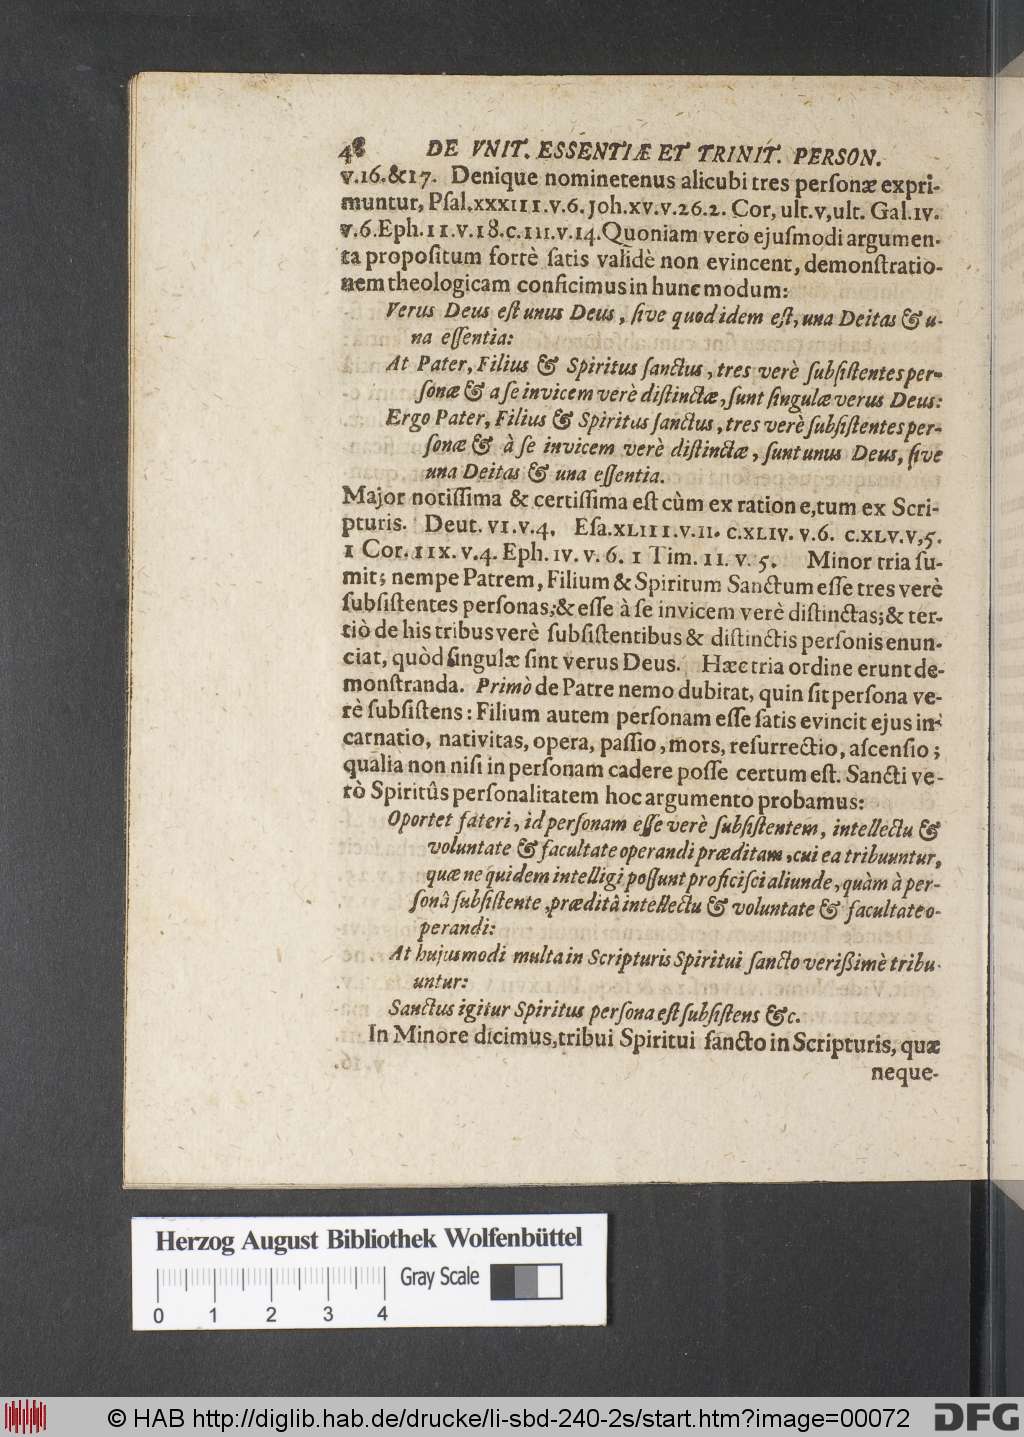 48 DE VNIT. ESSENTIÆ ET TRINIT. PERSON.
v.16.&17. Denique nominetenus alicubi tres perſonæ expri-
muntur, Pſal.xxxiii.v.6. Joh.xv.v.26.2. Cor, ult.v,ult. Gal.iv.
v.6.Eph.ii.v.18.c.iii.v.14.Quoniam verò ejuſmodi argumen-
ta propoſitum fortè ſatis validè non evincent, demonſtratio-
nem theologicam conficimus in hunc modum:
Verus Deus eſt unus Deus, ſive quod idem eſt, una Deitas & u-
na eſſentia:
At Pater, Filius & Spiritus ſanctus, tres verè ſubſiſtentes per-
ſonæ & a ſe invicem verè diſtinctæ, ſunt ſingulæ verus Deus:
Ergo Pater, Filius & Spiritus ſanctus, tres verè ſubſiſtentes per-
ſonæ & à ſe invicem verè diſtinctæ, ſunt unus Deus, ſive
una Deitas & una eſſentia.
Major notiſſima & certiſſima eſt cùm ex ration e,tum ex Scri-
pturis. Deut. vi.v.4. Eſa.xliii.v.ii. c.xliv. v.6. c.xlv.v,5.
1 Cor. iix. v.4. Eph. iv. v. 6. 1 Tim. ii. v. 5. Minor tria ſu-
mit; nempe Patrem, Filium & Spiritum Sanctum eſſe tres verè
ſubſiſtentes perſonas;& eſſe à ſe invicem verè diſtinctas;& ter-
tiò de his tribus verè ſubſiſtentibus & diſtinctis perſonis enun-
ciat, quòd ſingulæ ſint verus Deus. Hæc tria ordine erunt de-
monſtranda. Primò de Patre nemo dubitat, quin ſit perſona ve-
rè ſubſiſtens: Filium autem perſonam eſſe ſatis evincit ejus in-
carnatio, nativitas, opera, paſſio, mors, reſurrectio, aſcenſio;
qualia non niſi in perſonam cadere poſſe certum eſt. Sancti ve-
rò Spiritûs perſonalitatem hoc argumento probamus:
Oportet fateri, id perſonam eſſe verè ſubſiſtentem, intellectu &
voluntate & facultate operandi præditam, cui ea tribuuntur,
quæ ne quidem intelligi poſſunt proficiſci aliunde, quàm à per-
ſonâ ſubſiſtente, præditâ intellectu & voluntate & facultate o-
perandi:
At hujusmodi multa in Scripturis Spiritui ſancto verißimè tribu-
untur:
Sanctus igitur Spiritus perſona eſt ſubſiſtens &c.
In Minore dicimus, tribui Spiritui ſancto in Scripturis, quæ
neque-
Herzog August Bibliothek Wolfenbüttel
Gray Scale
0 1 2 3 4
© HAB http://diglib.hab.de/drucke/li-sbd-240-2s/start.htm?image=00072 DFG